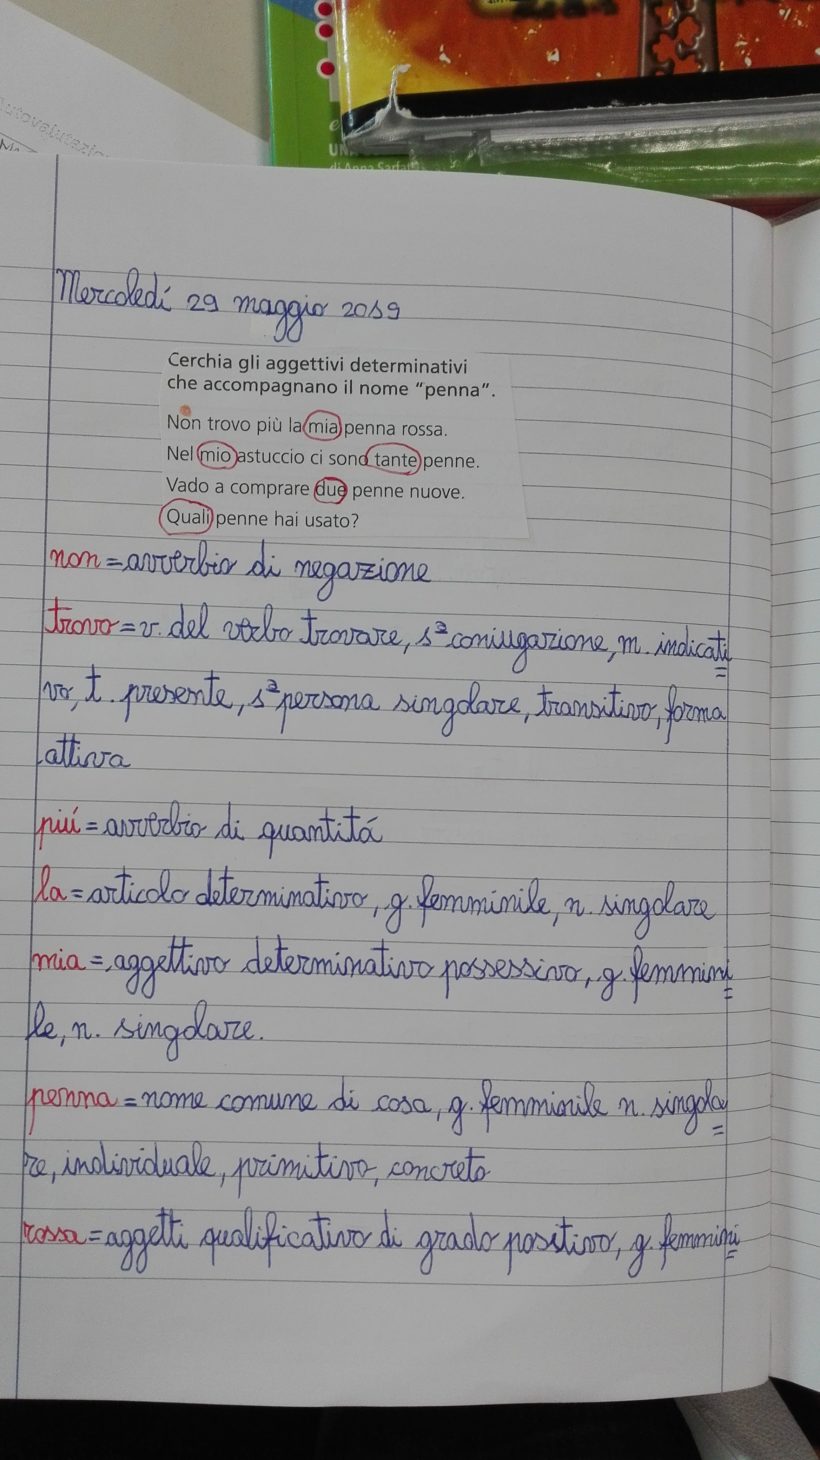 utovalutazio
UN
di Anna Sarfa
Mercoledí 29 maggio 2019
Cerchia gli aggettivi determinativi
che accompagnano il nome “penna”.
Non trovo più la mia penna rossa.
Nel mio astuccio ci sono tante penne.
Vado a comprare due penne nuove.
Quali penne hai usato?
non = avverbio di negazione
trovo = v. del verbo trovare, 1ª coniugazione, m. indicati
vo, t. presente, 1ª persona singolare, transitivo, forma
attiva
piú = avverbio di quantitá
la = articolo determinativo, g. femminile, n. singolare
mia = aggettivo determinativo possessivo, g. femmini
le, n. singolare.
penna = nome comune di cosa, g. femminile n. singola
re, individuale, primitivo, concreto
rossa = aggetti qualificativo di grado positivo, g. femmini